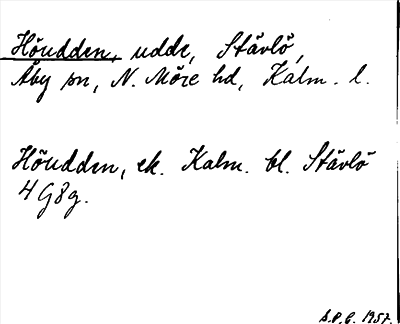 Höudden, udde, Stävlö,
Åby sn, N. Möre hd, Kalm. l.
Höudden, ek. Kalm. bl. Stävlö
4 G 8 g.
1957.